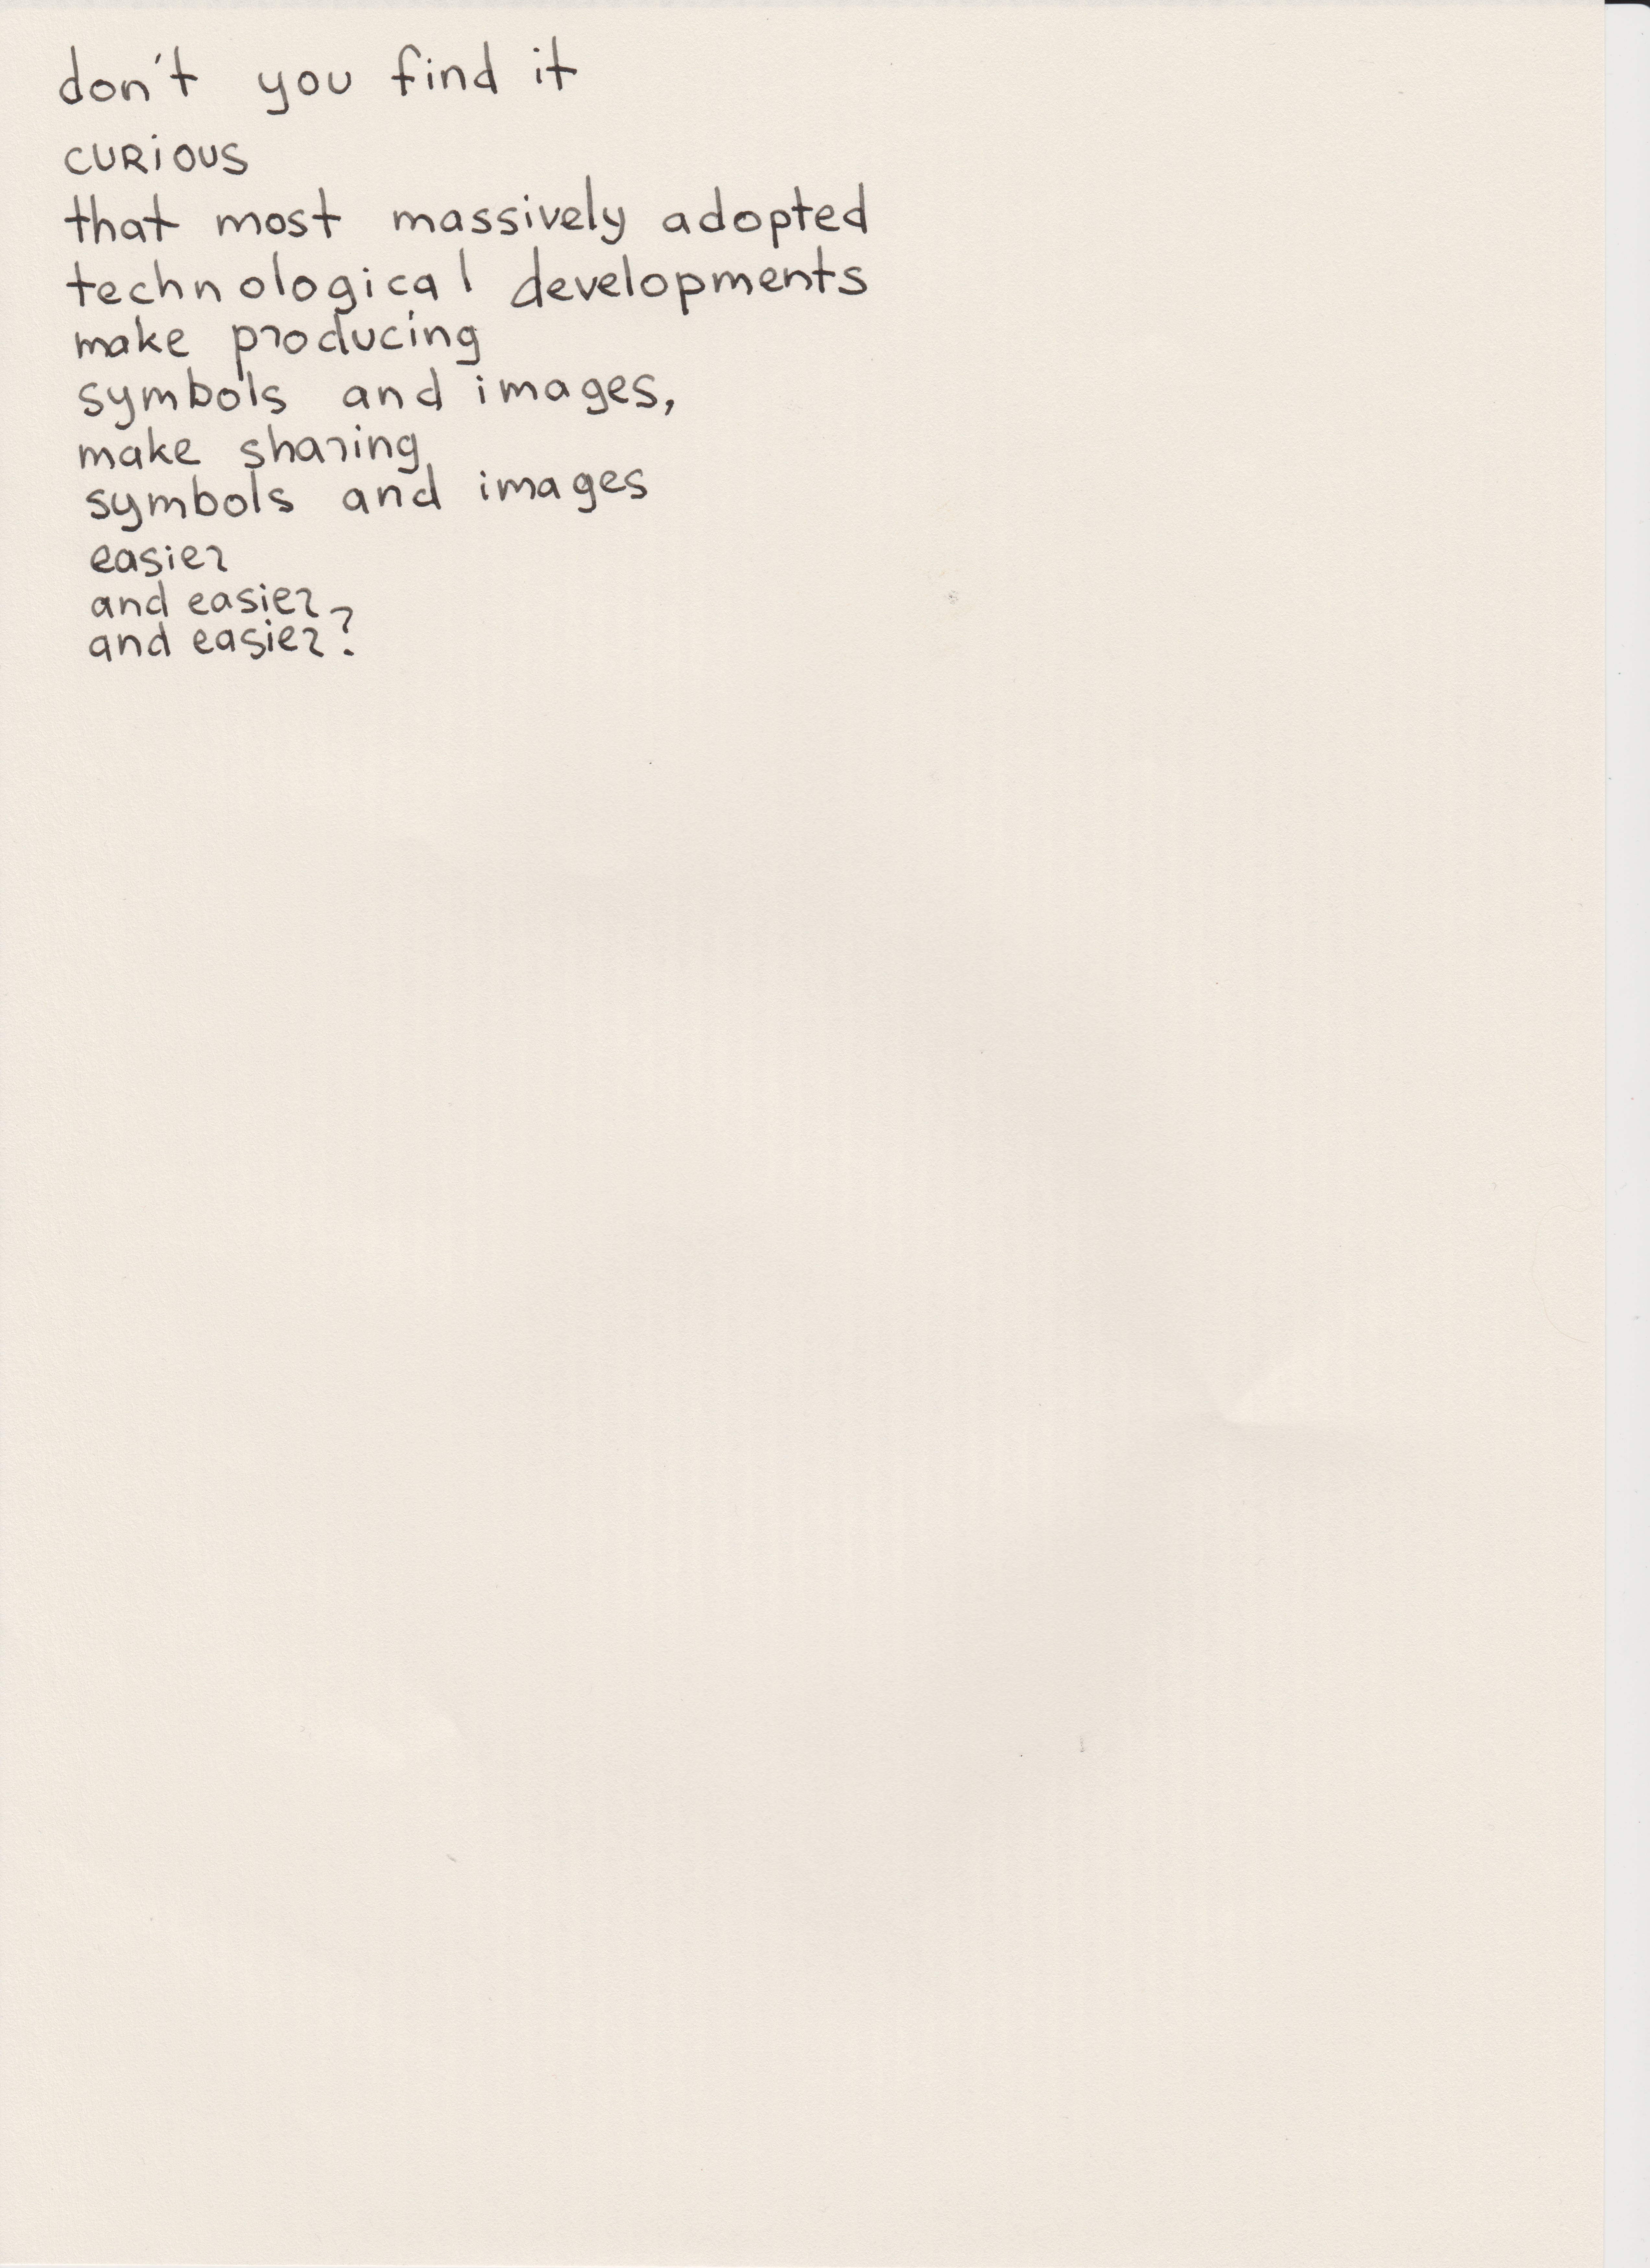 don't you find it
CURiOUS
that most massively adopted
technological developments
make producing
symbols and images,
make sharing
symbols and images
easier
and easier
and easier?